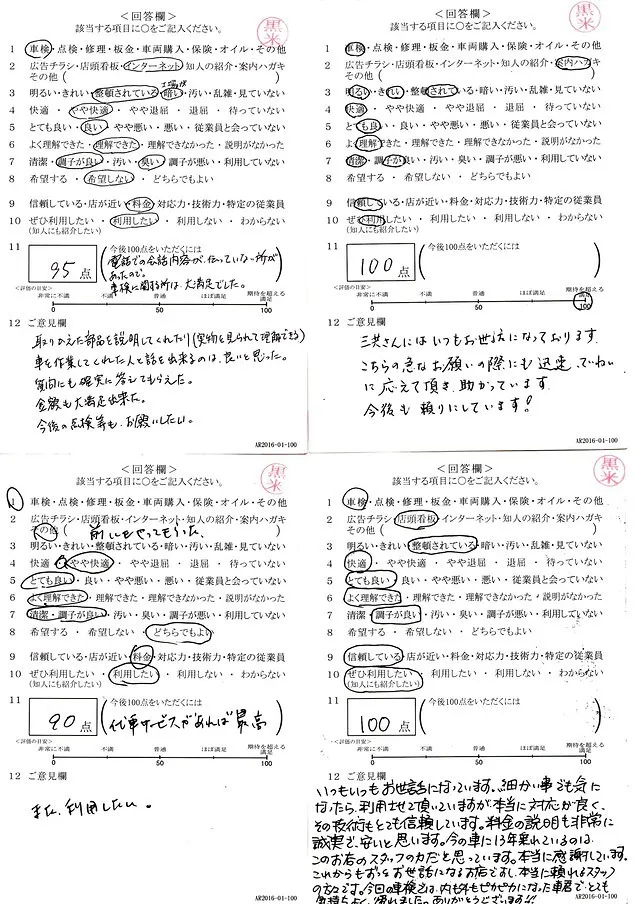 ＜回答欄＞
該当する項目に○をご記入ください。
黒米
1 車検・点検・修理・板金・車両購入・保険・オイル・その他
2 広告チラシ・店頭看板・インターネット・知人の紹介・案内ハガキ
その他（
3 明るい・きれい・整頓されている・暗い・汚い・乱雑・見ていない
工場横
4 快適・やや快適・やや退屈・退屈・待っていない
5 とても良い・良い・やや悪い・悪い・従業員と会っていない
6 よく理解できた・理解できた・理解できなかった・説明がなかった
7 清潔・調子が良い・汚い・臭い・調子が悪い・利用していない
8 希望する・希望しない・どちらでもよい
9 信頼している・店が近い・料金・対応力・技術力・特定の従業員
10 ぜひ利用したい・利用したい・利用しない・わからない
(知人にも紹介したい)
11 95点
今後100点をいただくには
電話での会話内容が、伝っていない所が
あったので。
車検に関する所は、大満足でした。
＜評価の目安＞
非常に不満 不満 普通 ほぼ満足 期待を超える満足
0 50 100
12 ご意見欄
取りかえた部品を説明してくれたり(実物を見られて理解できる)
車を作業してくれた人と話を出来るのは、良いと思った。
質問にも確実に答えてもらえた。
金額も大満足出来た。
今後の点検等も、お願いしたい。
AR2016-01-100
＜回答欄＞
該当する項目に○をご記入ください。
黒米
1 車検・点検・修理・板金・車両購入・保険・オイル・その他
2 広告チラシ・店頭看板・インターネット・知人の紹介・案内ハガキ
その他（
3 明るい・きれい・整頓されている・暗い・汚い・乱雑・見ていない
4 快適・やや快適・やや退屈・退屈・待っていない
5 とても良い・良い・やや悪い・悪い・従業員と会っていない
6 よく理解できた・理解できた・理解できなかった・説明がなかった
7 清潔・調子が良い・汚い・臭い・調子が悪い・利用していない
8 希望する・希望しない・どちらでもよい
9 信頼している・店が近い・料金・対応力・技術力・特定の従業員
10 ぜひ利用したい・利用したい・利用しない・わからない
(知人にも紹介したい)
11 100点
今後100点をいただくには
＜評価の目安＞
非常に不満 不満 普通 ほぼ満足 期待を超える満足
0 50 100
12 ご意見欄
三共さんにはいつもお世話になっております。
こちらの急なお願いの際にも迅速、ていねい
に応えて頂き、助かっています。
今後も頼りにしています!
AR2016-01-100
＜回答欄＞
該当する項目に○をご記入ください。
黒米
1 車検・点検・修理・板金・車両購入・保険・オイル・その他
2 広告チラシ・店頭看板・インターネット・知人の紹介・案内ハガキ
その他（前にもやってもらった、
3 明るい・きれい・整頓されている・暗い・汚い・乱雑・見ていない
4 快適・やや快適・やや退屈・退屈・待っていない
5 とても良い・良い・やや悪い・悪い・従業員と会っていない
6 よく理解できた・理解できた・理解できなかった・説明がなかった
7 清潔・調子が良い・汚い・臭い・調子が悪い・利用していない
8 希望する・希望しない・どちらでもよい
9 信頼している・店が近い・料金・対応力・技術力・特定の従業員
10 ぜひ利用したい・利用したい・利用しない・わからない
(知人にも紹介したい)
11 90点
今後100点をいただくには
代車サービスがあれば最高
＜評価の目安＞
非常に不満 不満 普通 ほぼ満足 期待を超える満足
0 50 100
12 ご意見欄
また、利用したい。
AR2016-01-100
＜回答欄＞
該当する項目に○をご記入ください。
黒米
1 車検・点検・修理・板金・車両購入・保険・オイル・その他
2 広告チラシ・店頭看板・インターネット・知人の紹介・案内ハガキ
その他（
3 明るい・きれい・整頓されている・暗い・汚い・乱雑・見ていない
4 快適・やや快適・やや退屈・退屈・待っていない
5 とても良い・良い・やや悪い・悪い・従業員と会っていない
6 よく理解できた・理解できた・理解できなかった・説明がなかった
7 清潔・調子が良い・汚い・臭い・調子が悪い・利用していない
8 希望する・希望しない・どちらでもよい
9 信頼している・店が近い・料金・対応力・技術力・特定の従業員
10 ぜひ利用したい・利用したい・利用しない・わからない
(知人にも紹介したい)
11 100点
今後100点をいただくには
＜評価の目安＞
非常に不満 不満 普通 ほぼ満足 期待を超える満足
0 50 100
12 ご意見欄
いつもいつもお世話になっています。細かい事でも気に
なったら、利用させて頂いていますが、本当に対応が良く、
その技術もとても信頼しています。料金の説明も非常に
誠実で、安いと思います。今の車に13年乗れているのは、
このお店のスタッフの力だと思っています。本当に感謝しています。
これからもずっとお世話になるお店ですし、本当に頼れるスタッフ
の方々です。今回の車検では、内も外もピカピカになった車君で、とても
気持ちよく、帰れました。ありがとうございます!!